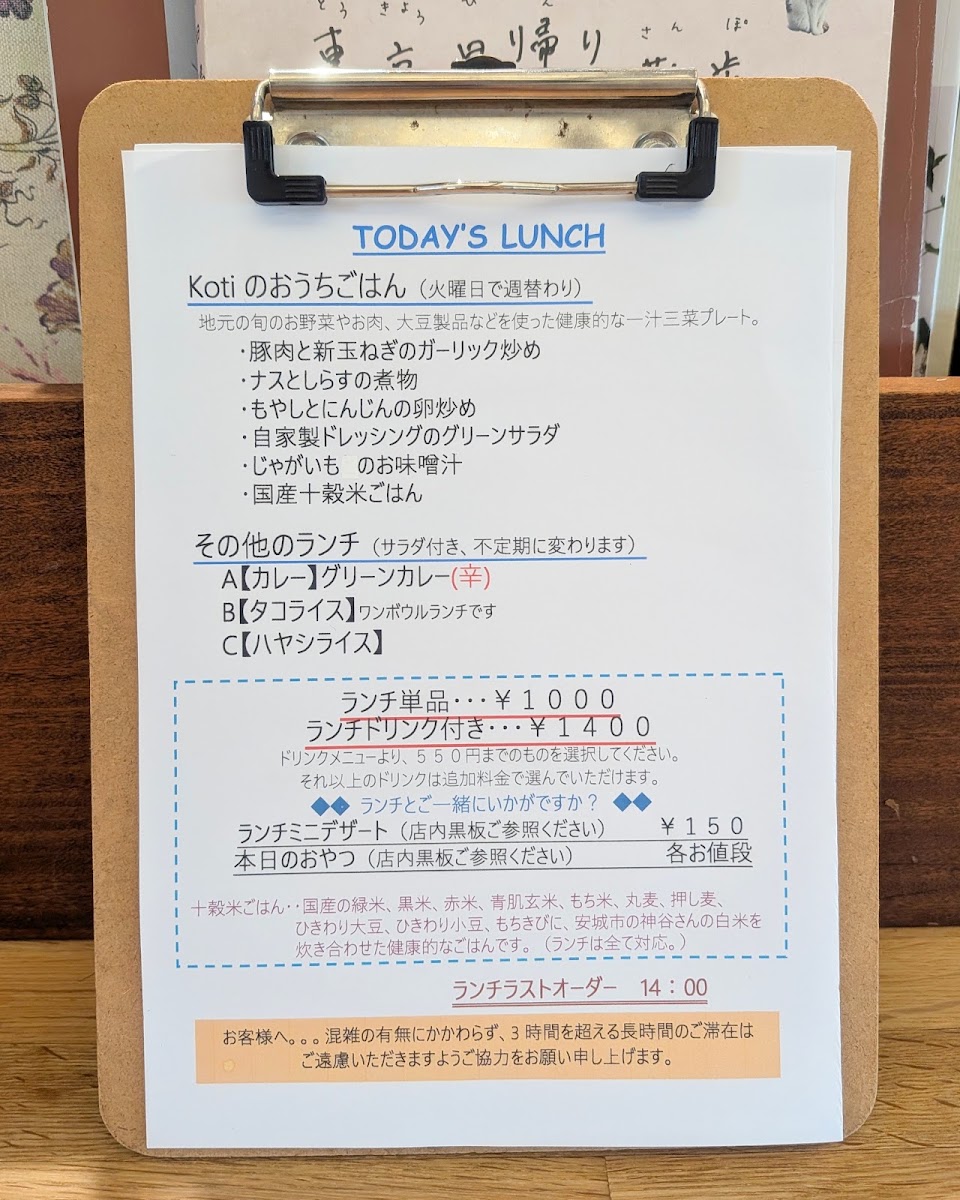 とうきょう ひ がえ さん ぽ
東京日帰り散歩
TODAY'S LUNCH
Koti のおうちごはん（火曜日で週替わり）
地元の旬のお野菜やお肉、大豆製品などを使った健康的な一汁三菜プレート。
・豚肉と新玉ねぎのガーリック炒め
・ナスとしらすの煮物
・もやしとにんじんの卵炒め
・自家製ドレッシングのグリーンサラダ
・じゃがいも のお味噌汁
・国産十穀米ごはん
その他のランチ（サラダ付き、不定期に変わります）
A【カレー】グリーンカレー(辛)
B【タコライス】ワンボウルランチです
C【ハヤシライス】
ランチ単品・・・￥１０００
ランチドリンク付き・・・￥１４００
ドリンクメニューより、５５０円までのものを選択してください。
それ以上のドリンクは追加料金で選んでいただけます。
◆◆ ランチとご一緒にいかがですか？ ◆◆
ランチミニデザート（店内黒板ご参照ください） ￥１５０
本日のおやつ（店内黒板ご参照ください） 各お値段
十穀米ごはん・・国産の緑米、黒米、赤米、青肌玄米、もち米、丸麦、押し麦、
ひきわり大豆、ひきわり小豆、もちきびに、安城市の神谷さんの白米を
炊き合わせた健康的なごはんです。（ランチは全て対応。）
ランチラストオーダー 14：00
お客様へ。。。混雑の有無にかかわらず、3 時間を超える長時間のご滞在は
ご遠慮いただきますようご協力をお願い申し上げます。